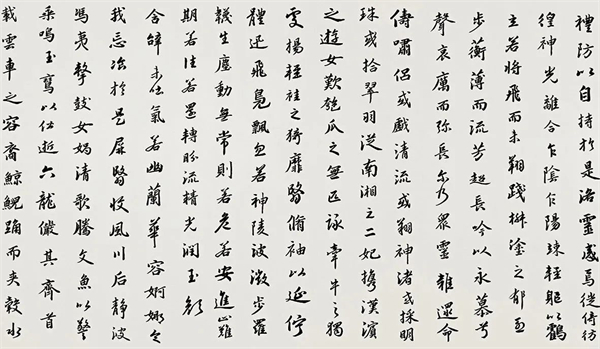 禮防以自持於是洛靈感焉徙倚彷
徨神光離合乍陰乍陽竦輕軀以鶴
立若將飛而未翔踐椒塗之郁烈
步蘅薄而流芳超長吟以永慕兮
聲哀厲而彌長爾乃眾靈雜遝命
儔嘯侶或戲清流或翔神渚或採明
珠或拾翠羽從南湘之二妃攜漢濱
之遊女歎匏瓜之無匹詠牽牛之獨
處揚輕袿之猗靡翳脩袖以延佇
體迅飛鳧飄忽若神陵波微步羅
襪生塵動無常則若危若安進止難
期若往若還轉眄流精光潤玉顏
含辭未吐氣若幽蘭華容婀娜令
我忘飡於是屏翳收風川后靜波
馮夷擊鼓女媧清歌騰文魚以警
乘鳴玉鸞以偕逝六龍儼其齊首
載雲車之容裔鯨鯢踊而夾轂水